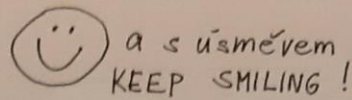 a s úsměvem
KEEP SMILING !